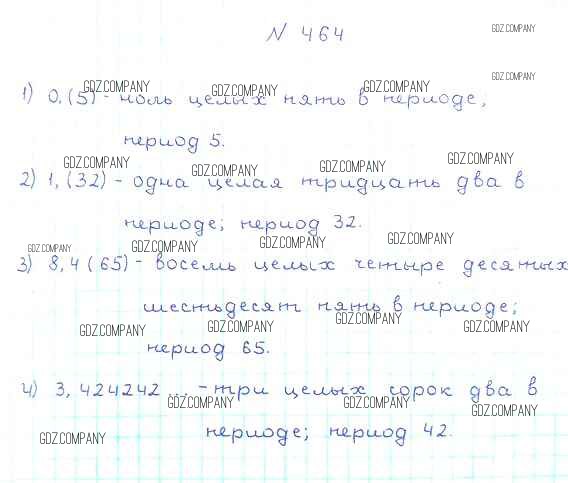 N 464
GDZ.COMPANY
GDZ.COMPANY
GDZ.COMPANY GDZ.COMPANY GDZ.COMPANY
1) 0,(5) - ноль целых пять в периоде;
период 5.
GDZ.COMPANY GDZ.COMPANY GDZ.COMPANY GDZ.COMPANY
2) 1,(32) - одна целая тридцать два в
периоде; период 32.
GDZ.COMPANY GDZ.COMPANY GDZ.COMPANY GDZ.COMPANY
3) 8,4(65) - восемь целых четыре десятых
шестьдесят пять в периоде;
GDZ.COMPANY GDZ.COMPANY GDZ.COMPANY GDZ.COMPANY
период 65.
4) 3,424242... - три целых сорок два в
GDZ.COMPANY GDZ.COMPANY GDZ.COMPANY
периоде; период 42.
GDZ.COMPANY